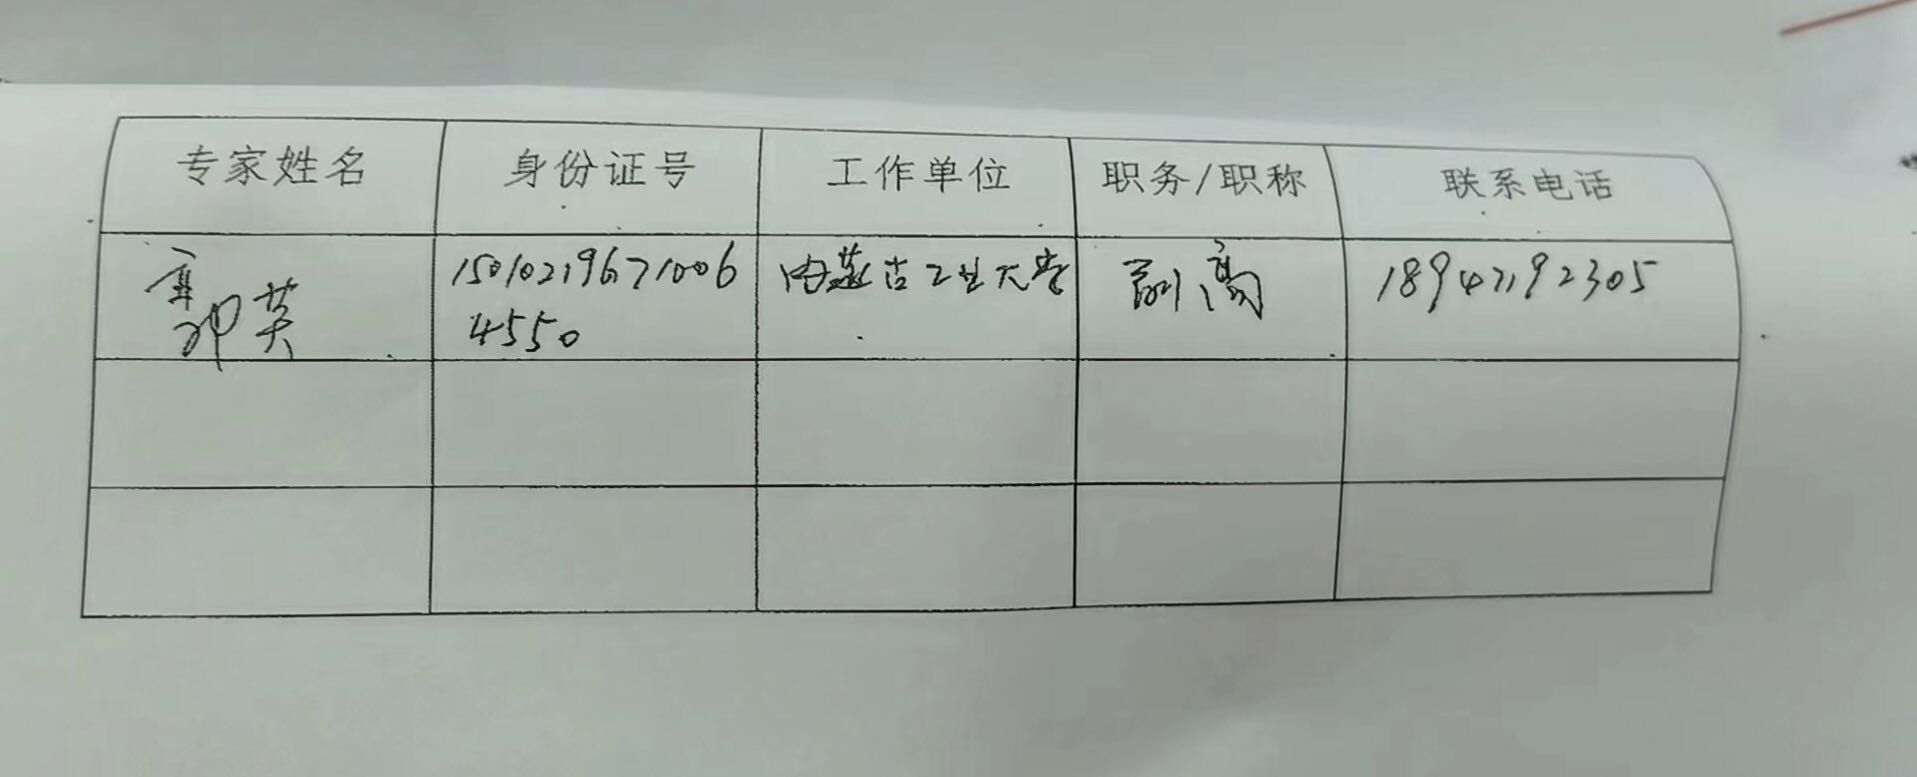 专家姓名 身份证号 工作单位 职务/职称 联系电话
15010219671006 内蒙古工业大学 副高 18947192305
英 4550